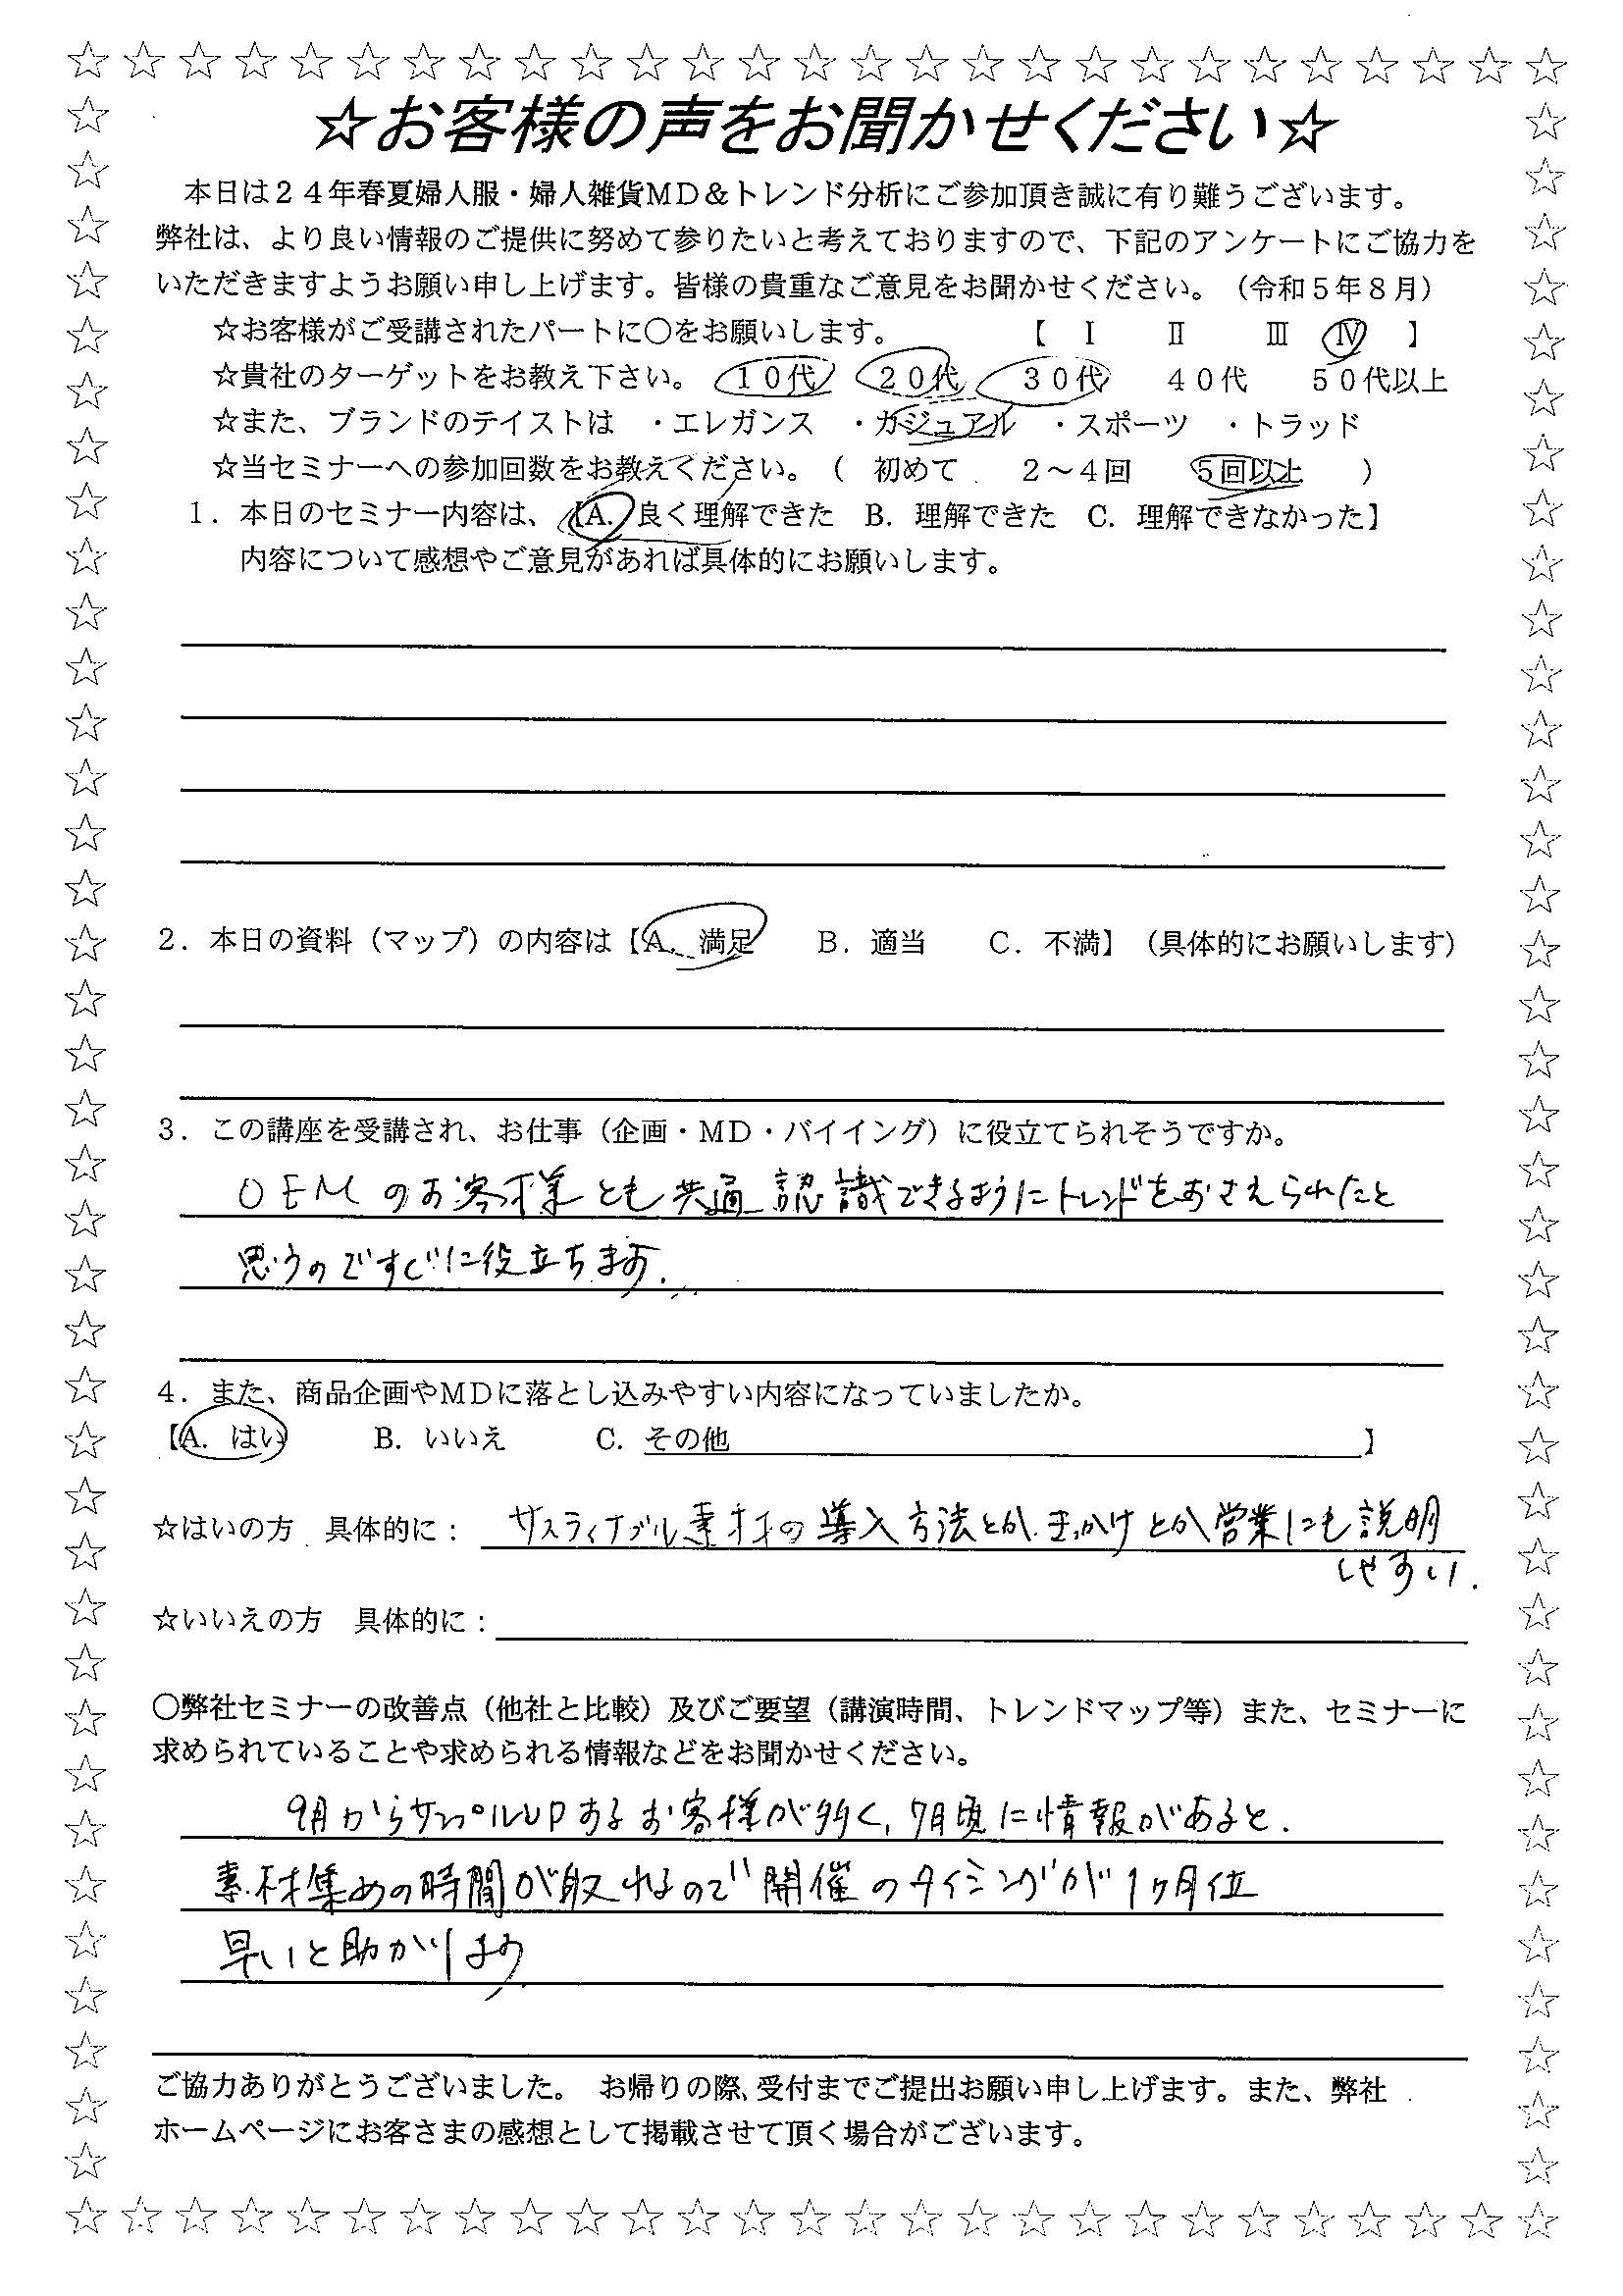 ☆お客様の声をお聞かせください☆
本日は２４年春夏婦人服・婦人雑貨MD＆トレンド分析にご参加頂き誠に有り難うございます。
弊社は、より良い情報のご提供に努めて参りたいと考えておりますので、下記のアンケートにご協力を
いただきますようお願い申し上げます。皆様の貴重なご意見をお聞かせください。（令和５年８月）
☆お客様がご受講されたパートに○をお願いします。 【 Ⅰ Ⅱ Ⅲ Ⅳ 】
☆貴社のターゲットをお教え下さい。 １０代 ２０代 ３０代 ４０代 ５０代以上
☆また、ブランドのテイストは ・エレガンス ・カジュアル ・スポーツ ・トラッド
☆当セミナーへの参加回数をお教えください。（ 初めて ２～４回 ５回以上 ）
１．本日のセミナー内容は、【A．良く理解できた B．理解できた C．理解できなかった】
内容について感想やご意見があれば具体的にお願いします。
２．本日の資料（マップ）の内容は【A．満足 B．適当 C．不満】（具体的にお願いします）
３．この講座を受講され、お仕事（企画・MD・バイイング）に役立てられそうですか。
OEMのお客様とも共通認識できるようにトレンドをおさえられたと
思うのですぐに役立ちます.
４．また、商品企画やMDに落とし込みやすい内容になっていましたか。
【A．はい B．いいえ C．その他 】
☆はいの方 具体的に： サスティナブル素材の導入方法とか、きっかけとか営業にも説明
しやすい.
☆いいえの方 具体的に：
○弊社セミナーの改善点（他社と比較）及びご要望（講演時間、トレンドマップ等）また、セミナーに
求められていることや求められる情報などをお聞かせください。
9月からサンプルUPするお客様が多く, 7月頃に情報があると.
素材集めの時間が取れるので開催のタイミングが1ヶ月位
早いと助かります
ご協力ありがとうございました。 お帰りの際、受付までご提出お願い申し上げます。また、弊社
ホームページにお客さまの感想として掲載させて頂く場合がございます。